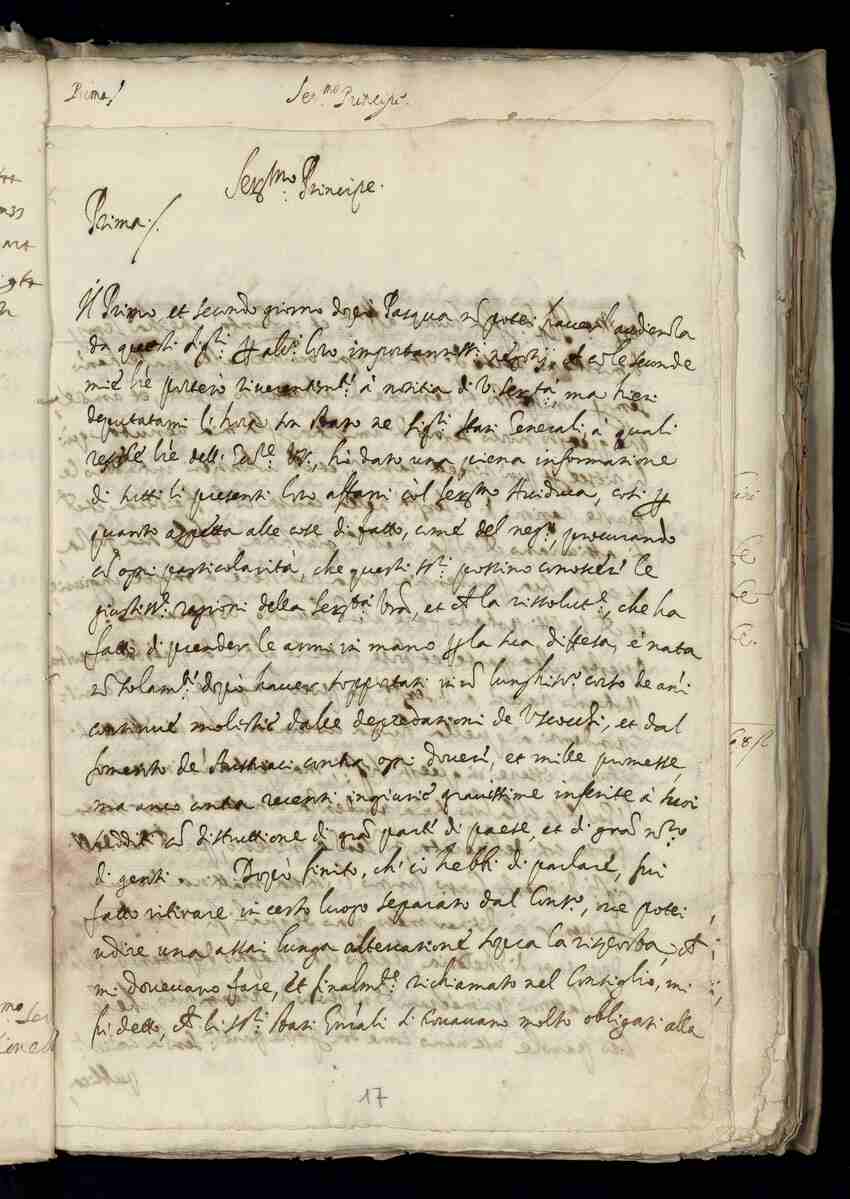 Prima/
Ser.mo Principe.
Ser.mo Principe.
Prima./.
Il Primo et secondo giorno dopò Pasqua nõ potei haver audienza
da questi Sig.ri altri loro importantiss.i negotij, et cõ le seconde
mie hò portato riverentem.te à notitia di V. Ser.tà, ma hieri
deputatami l'hora son stato ne Sig.ri Stati Generali à quali
hò dato una piena informatione
di tutti li presenti loro affari col Ser.mo Arciduca, così
quanto aspetta alle cose di fatto, come del neg.o, procurando
cõ ogni particolarità, che questi SS.ri possino conoscere le
giustiss.e ragioni della Ser.tà V̄ra, et la rissolut.e, che ha
fatto di prender le armi in mano la sua diffesa, è nata
nõ solam.te dopò haver sopportati in lunghiss.o corso de anni
continue molestie dalle depredationi de Uscochi, et dal
fomento de Austriaci contra ogni dovere, et mille promesse,
ma anco contra recenti ingiurie gravissime inferite à suoi
sudditi cõ distruttione di grã parte di paese, et di grã n.ro
di genti. Dopò finito, ch'io hebbi di parlare, fui
fatto ritirare in certo luogo separato dal Cons.o, ove potei
udire una assai lunga altercatione sopra la risposta,
mi dovevano fare, et finalm.te richiamato nel Consiglio, mi
fù detto, li SS.ri Stati Gn̄ali si trovavano molto obligati alla
17